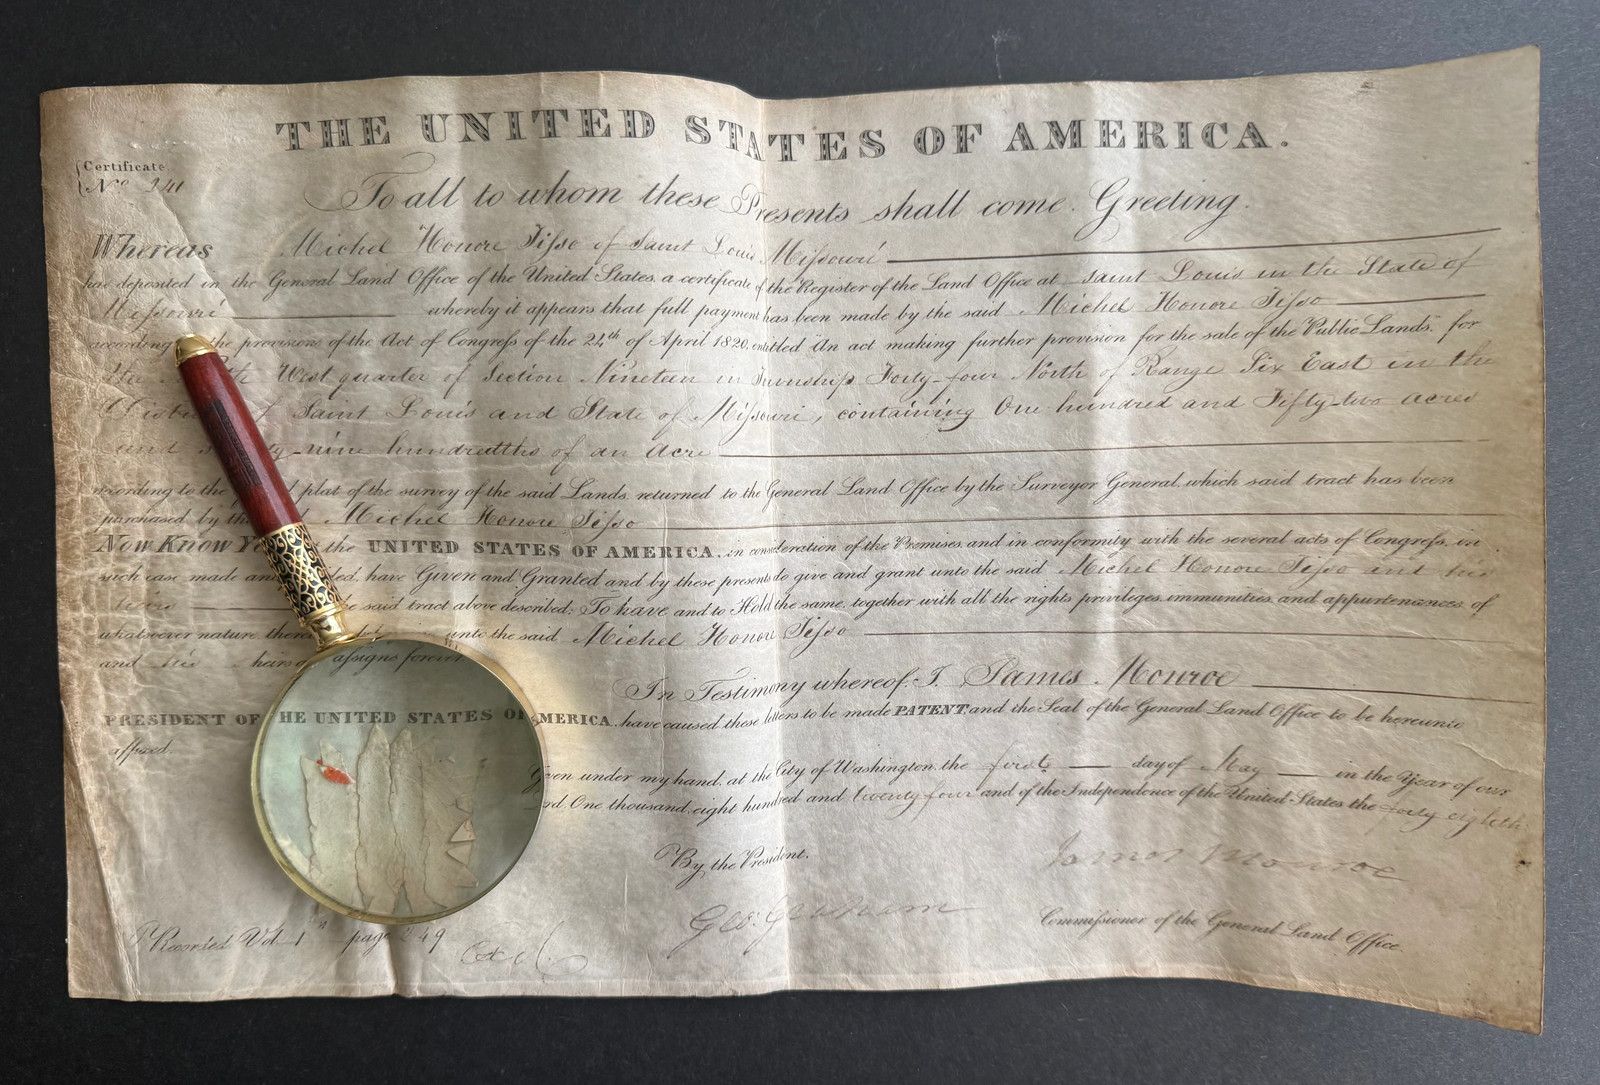 THE UNITED STATES OF AMERICA.
Certificate
No. 241
To all to whom these Presents shall come Greeting.
Whereas Michel Honore Tisso of Saint Louis Missouri
has deposited in the General Land Office of the United States, a certificate of the Register of the Land Office at Saint Louis in the State of
Missouri whereby it appears that full payment has been made by the said Michel Honore Tisso
according the provisions of the Act of Congress of the 24th of April 1820, entitled An act making further provision for the sale of the Public Lands, for
the West quarter of Section Nineteen in Township Forty-four North of Range Six East in the
District of Saint Louis and State of Missouri, containing One hundred and Fifty-two acres
and nine hundredths of an acre
according to the plat of the survey of the said Lands, returned to the General Land Office by the Surveyor General, which said tract has been
purchased by the Michel Honore Tisso
Now Know Ye the UNITED STATES OF AMERICA, in consideration of the Premises, and in conformity with the several acts of Congress, in
such case made and have Given and Granted and by these presents do give and grant unto the said Michel Honore Tisso and his
heirs the said tract above described; To have and to Hold the same, together with all the rights privileges, immunities, and appurtenances of
whatsoever nature, unto the said Michel Honore Tisso
and his heirs assigns forever
In Testimony whereof, I, James Monroe
PRESIDENT OF THE UNITED STATES OF AMERICA, have caused these letters to be made PATENT, and the Seal of the General Land Office to be hereunto
affixed.
Given under my hand, at the City of Washington, the first day of May in the Year of our
Lord, One thousand, eight hundred and twenty four and of the Independence of the United States the forty eighth
By the President.
James Monroe
Geo: Graham
Commissioner of the General Land Office.
Recorded Vol. 1 page 249